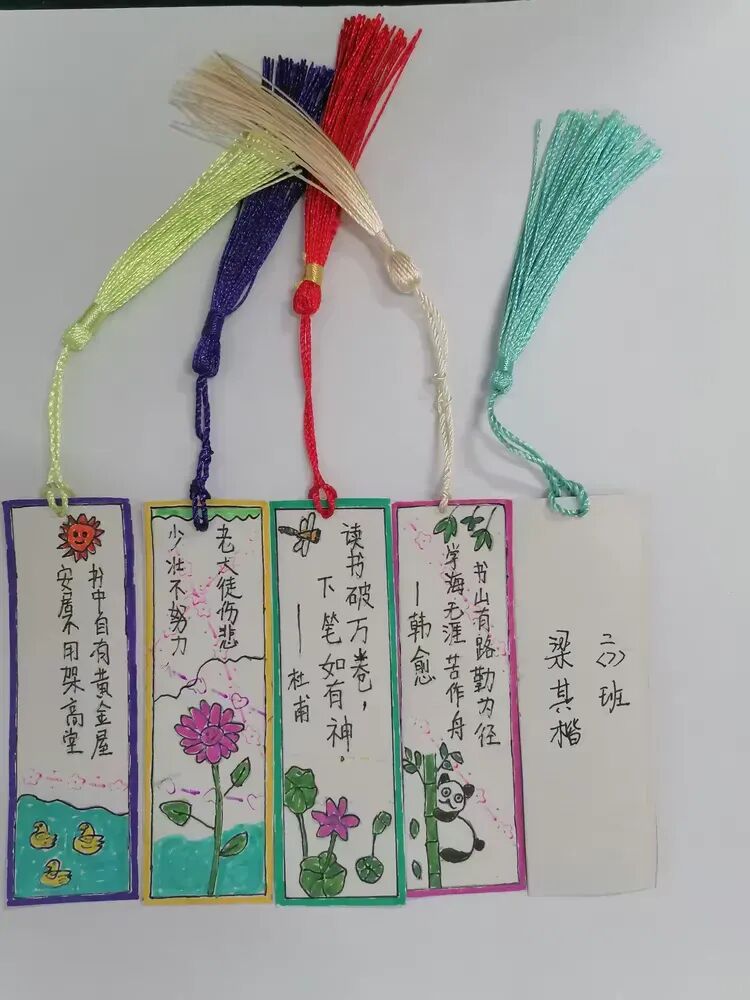 书中自有黄金屋
安居不用架高堂
少壮不努力
老大徒伤悲
读书破万卷，
下笔如有神.
——杜甫
书山有路勤为径
学海无涯苦作舟
—韩愈
二班
梁其楷